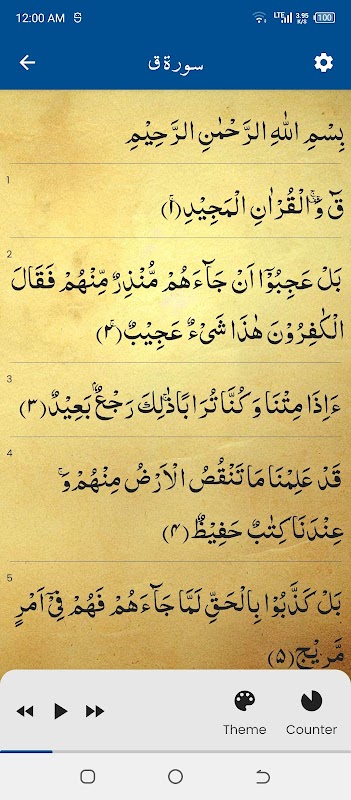 12:00 AM
LTE 3.95 K/S 100
سورة ق
بِسْمِ اللهِ الرَّحْمٰنِ الرَّحِيْمِ
1
قٓ وَالْقُرْاٰنِ الْمَجِيْدِ(۱)
2
بَلْ عَجِبُوْۤا اَنْ جَآءَهُمْ مُّنْذِرٌ مِّنْهُمْ فَقَالَ
الْكٰفِرُوْنَ هٰذَا شَیْءٌ عَجِيْبٌ(۲)
3
ءَاِذَا مِتْنَا وَ كُنَّا تُرَابًاۚ ذٰلِكَ رَجْعٌۢ بَعِيْدٌ(۳)
4
قَدْ عَلِمْنَا مَا تَنْقُصُ الْاَرْضُ مِنْهُمْۚ وَ
عِنْدَنَا كِتٰبٌ حَفِيْظٌ(۴)
5
بَلْ كَذَّبُوْا بِالْحَقِّ لَمَّا جَآءَهُمْ فَهُمْ فِیْۤ اَمْرٍ
مَّرِيْجٍ(۵)
Theme Counter